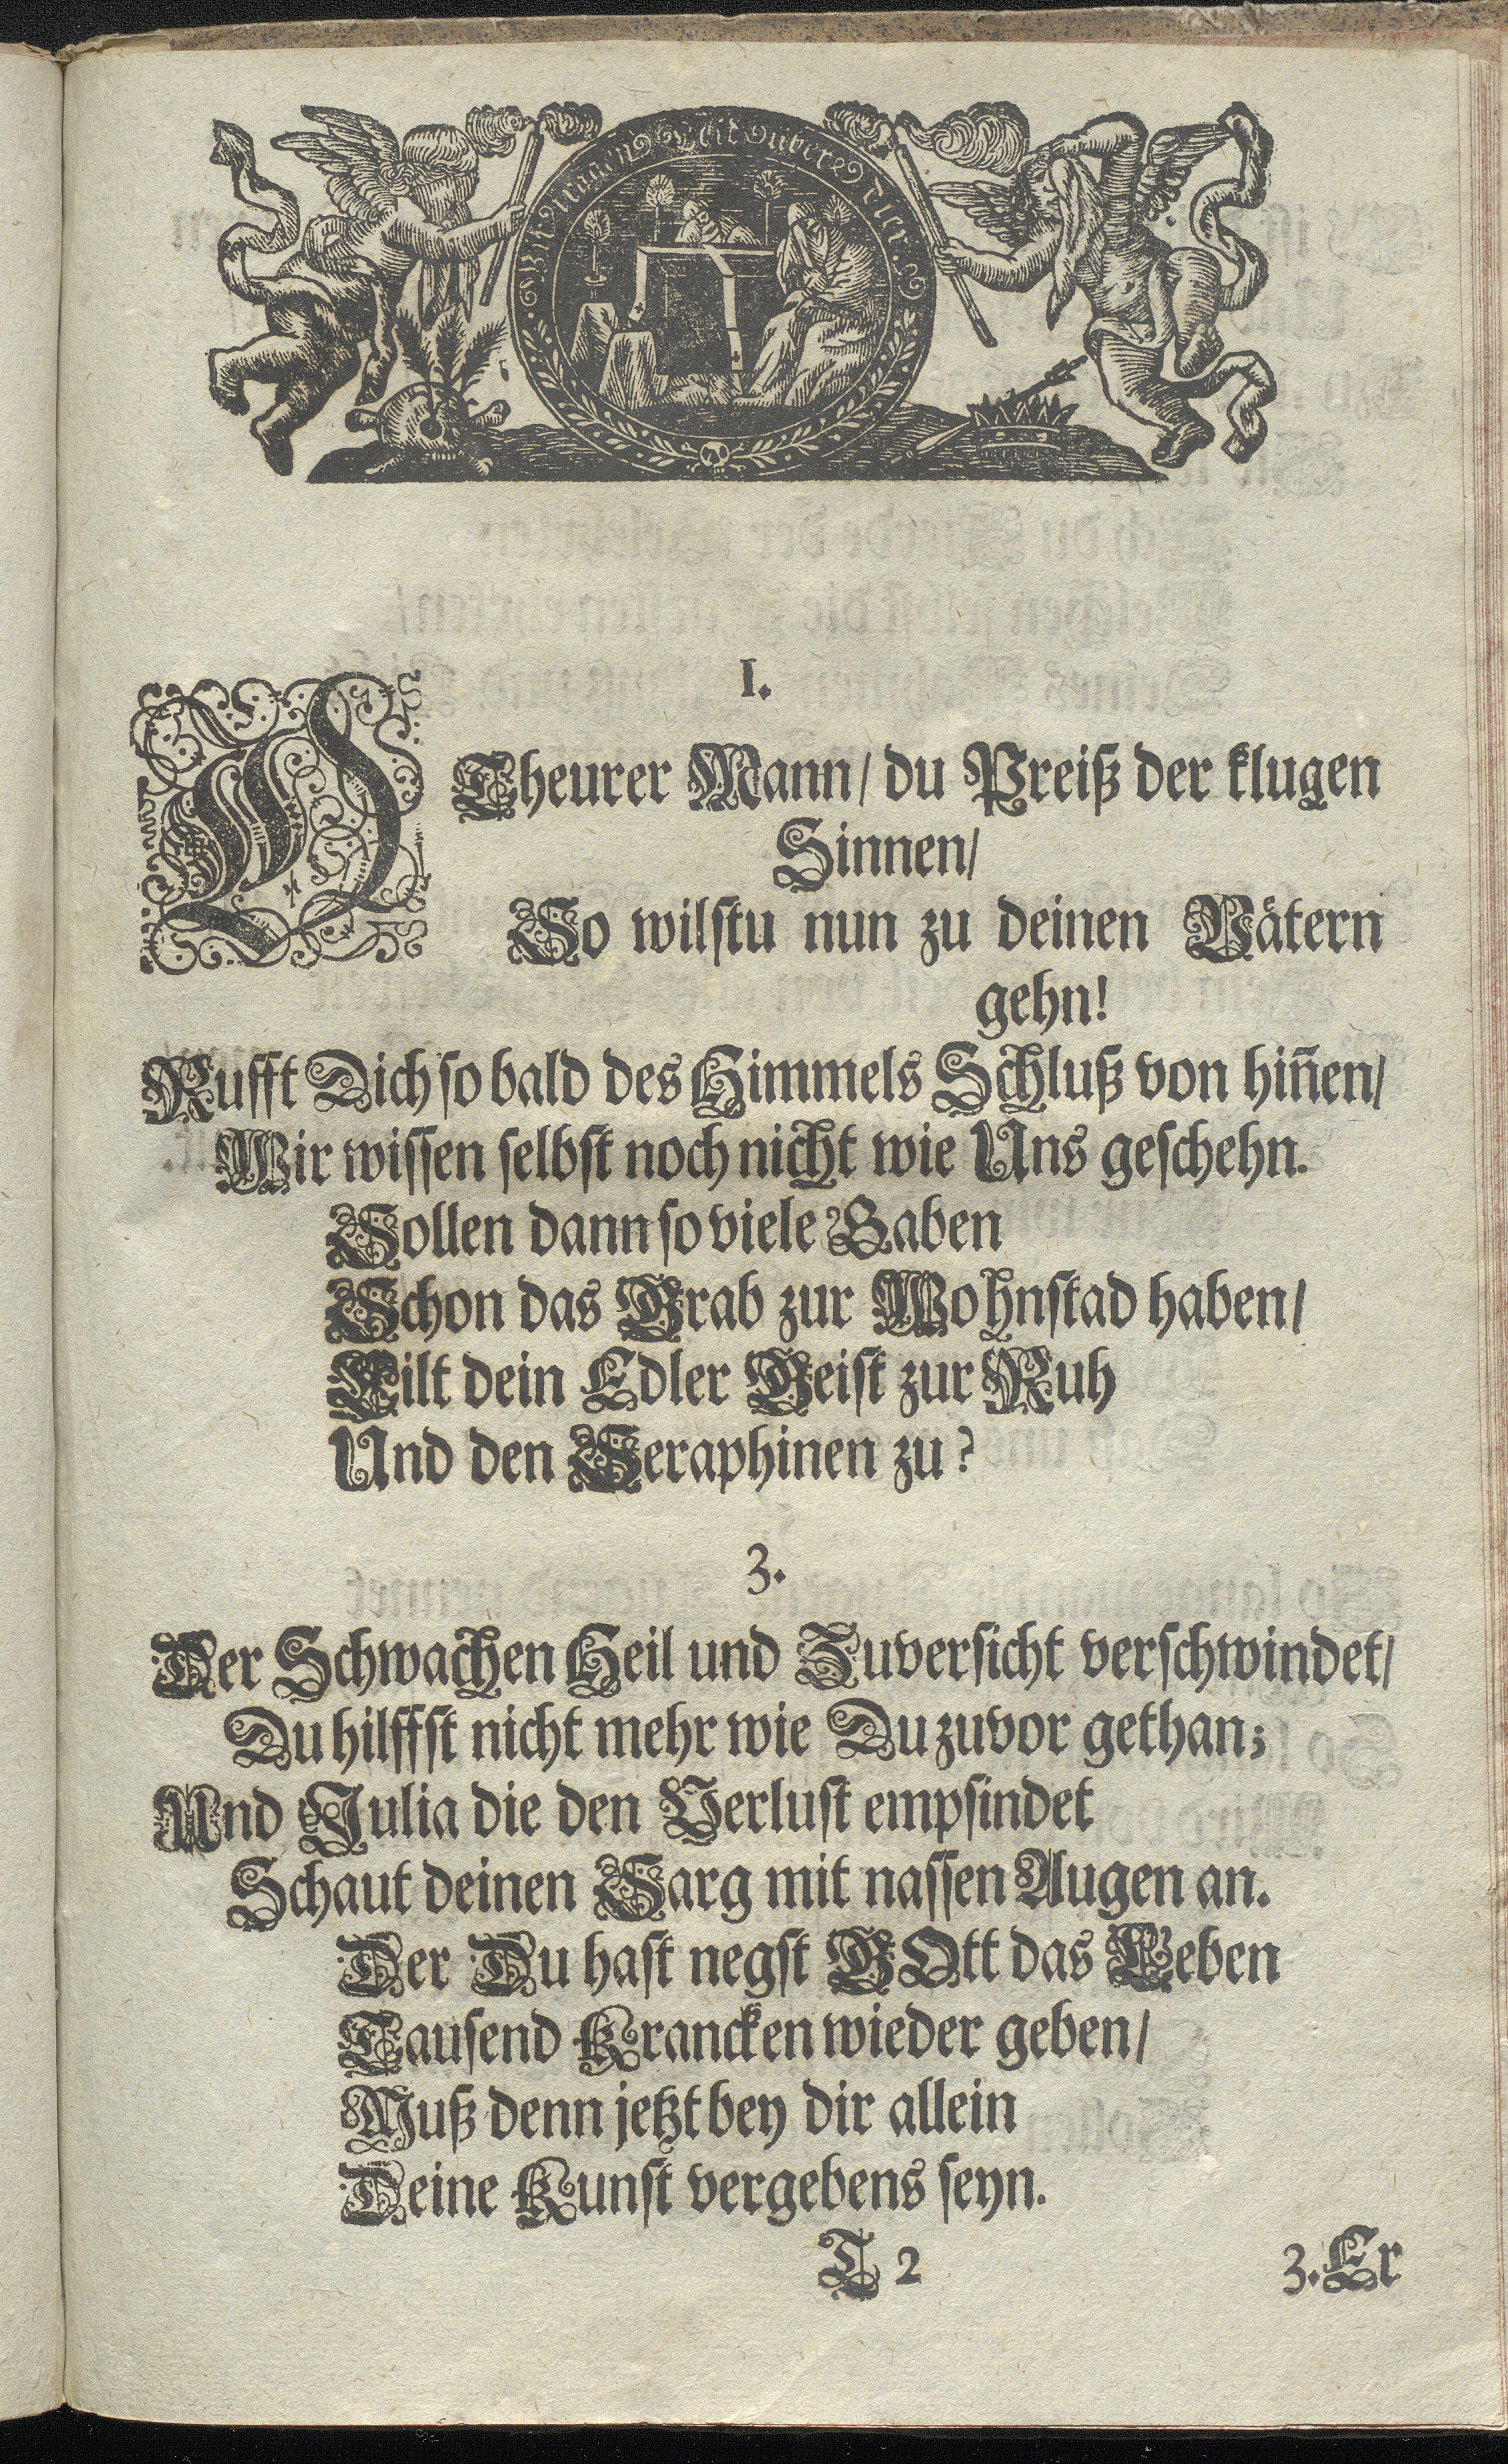 Wir tragen Leid uber dir.
I.
W Theurer Mann / du Preiß der klugen
Sinnen /
So wilstu nun zu deinen Våtern
gehn!
Rufft Dich so bald des Himmels Schluß von hiñen /
Wir wissen selbst noch nicht wie Uns geschehn.
Sollen dann so viele Gaben
Schon das Grab zur Wohnstad haben /
Eilt dein Edler Geist zur Ruh
Und den Seraphinen zu?
3.
Der Schwachen Heil und Zuversicht verschwindet /
Du hilffst nicht mehr wie Du zuvor gethan;
Und Julia die den Verlust empfindet
Schaut deinen Sarg mit nassen Augen an.
Der Du hast negst GOtt das Leben
Tausend Krancken wieder geben /
Muß denn jetzt bey dir allein
Deine Kunst vergebens seyn.
T 2
3. Er